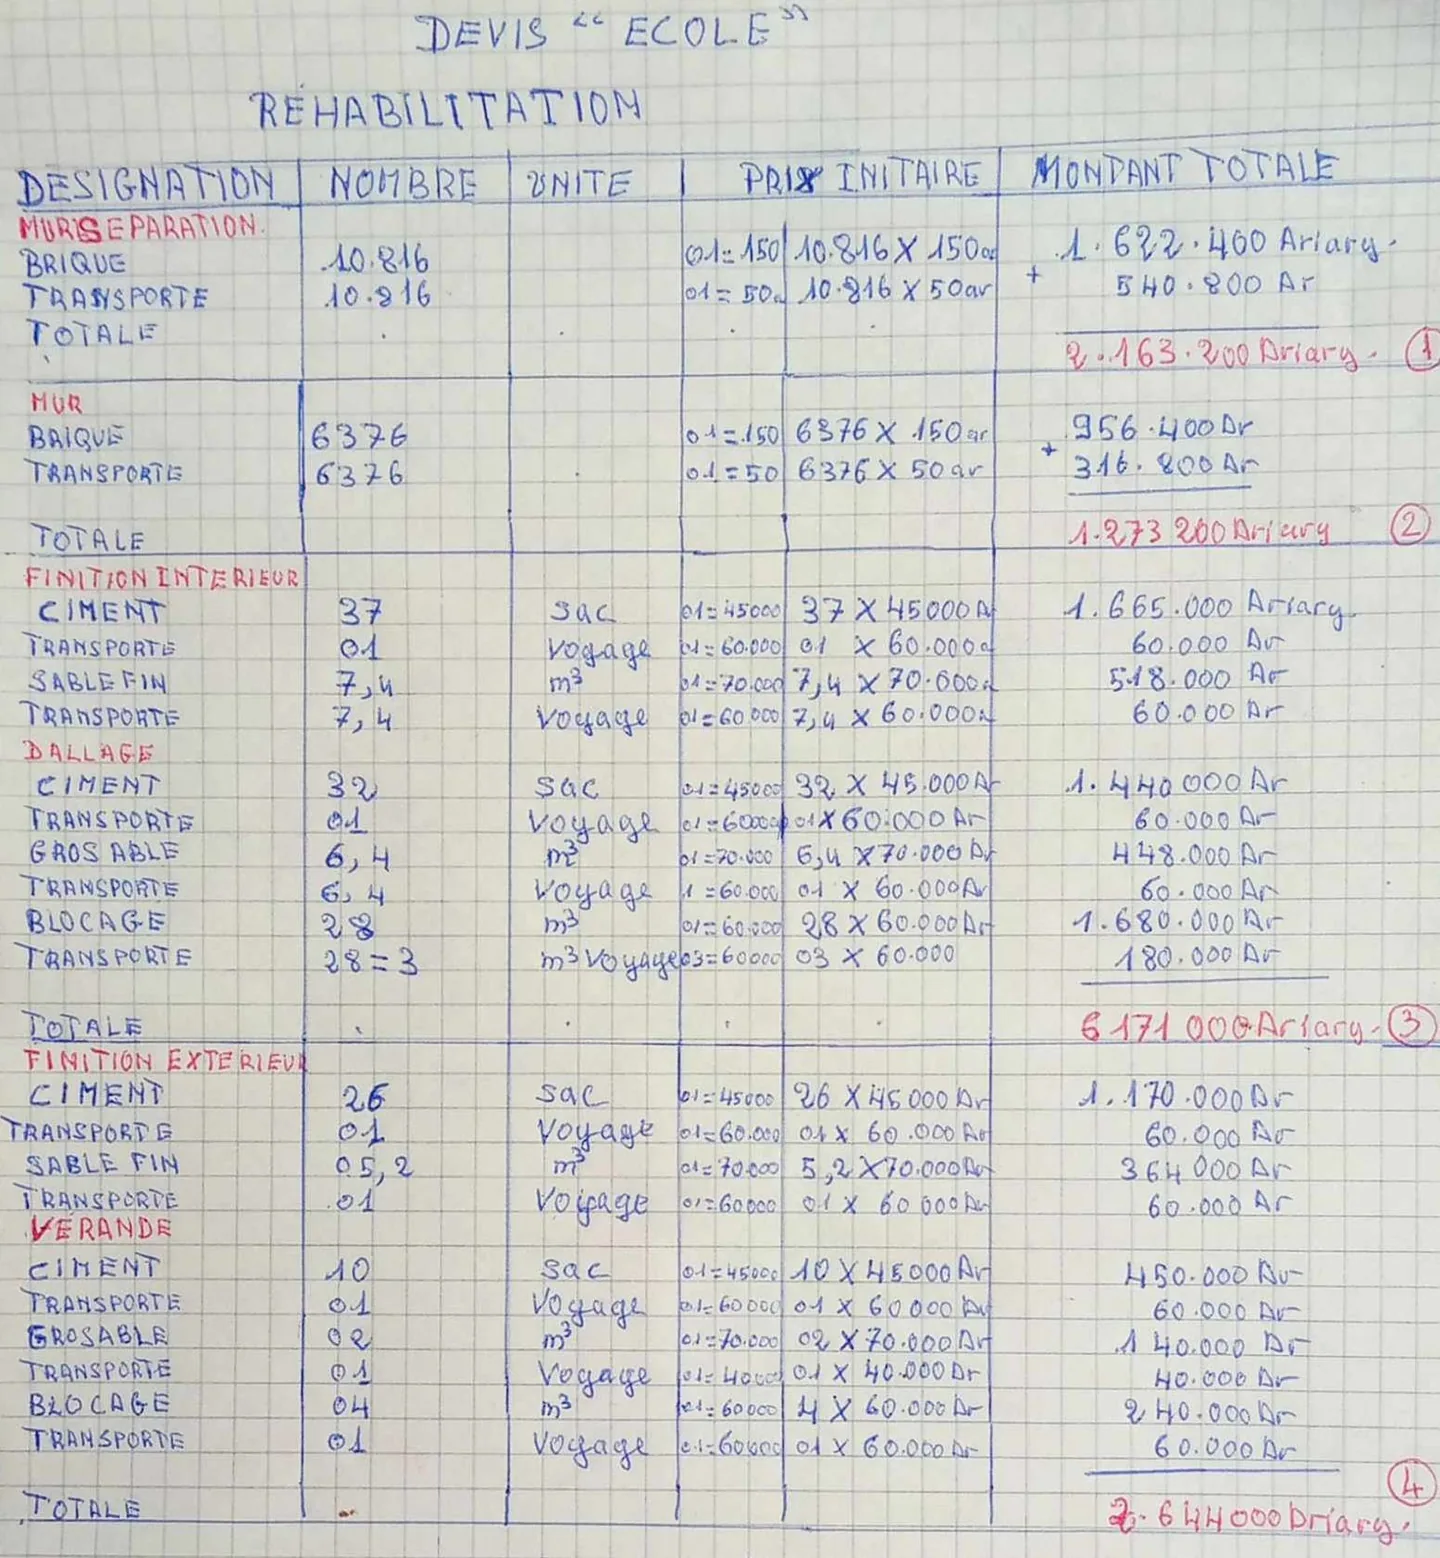 DEVIS "ECOLE"
REHABILITATION
DESIGNATION NOMBRE UNITE PRIX INITAIRE MONTANT TOTALE
MURSEPARATION.
BRIQUE 10.816 01=150 10.816 X 150ar 1.622.400 Ariary.
TRANSPORTE 10.816 01=50a 10.816 X 50ar + 540.800 Ar
TOTALE 2.163.200 Ariary. 1
MUR
BRIQUE 6376 01=150 6376 X 150ar 956.400Ar
TRANSPORTE 6376 01=50 6376 X 50ar + 316.800 Ar
TOTALE 1.273 200 Ariary 2
FINITION INTERIEUR
CIMENT 37 Sac 01=45000 37 X 45000A 1.665.000 Ariary.
TRANSPORTE 01 Voyage 01=60.000 01 X 60.000a 60.000 Ar
SABLE FIN 7,4 m³ 01=70.000 7,4 X 70.000a 518.000 Ar
TRANSPORTE 7,4 Voyage 01=60000 7,4 X 60.000a 60.000 Ar
DALLAGE
CIMENT 32 Sac 01=45000 32 X 45.000Ar 1.440000 Ar
TRANSPORTE 01 Voyage 01=60000 01X60.000 Ar 60.000 Ar
GROSABLE 6,4 m³ 01=70.000 6,4 X70.000 Ar 448.000 Ar
TRANSPORTE 6,4 Voyage 1=60.000 01 X 60.000Ar 60.000 Ar
BLOCAGE 28 m³ 01=60.000 28 X 60.000Ar 1.680.000 Ar
TRANSPORTE 28=3 m³ Voyage 03=60000 03 X 60.000 180.000 Ar
TOTALE 6171000Ariary. 3
FINITION EXTERIEUR
CIMENT 26 Sac 01=45000 26 X 45000 Ar 1.170.000 Ar
TRANSPORTE 01 Voyage 01=60.000 01 X 60.000 Ar 60.000 Ar
SABLE FIN 05,2 m³ 01=70000 5,2 X70.000Ar 364000 Ar
TRANSPORTE 01 Voyage 01=60000 01 X 60000Ar 60.000 Ar
VERANDE
CIMENT 10 Sac 01=45000 10 X 45000 Ar 450.000 Ar
TRANSPORTE 01 Voyage 01=60000 01 X 60000 Ar 60.000 Ar
GROSABLE 02 m³ 01=70.000 02 X 70.000Ar 140.000 Ar
TRANSPORTE 01 Voyage 01=40000 01 X 40.000 Ar 40.000 Ar
BLOCAGE 04 m³ 01=60000 4 X 60.000 Ar 240.000 Ar
TRANSPORTE 01 Voyage 01=60000 01 X 60.000 Ar 60.000 Ar
TOTALE 2.644000 Ariary. 4